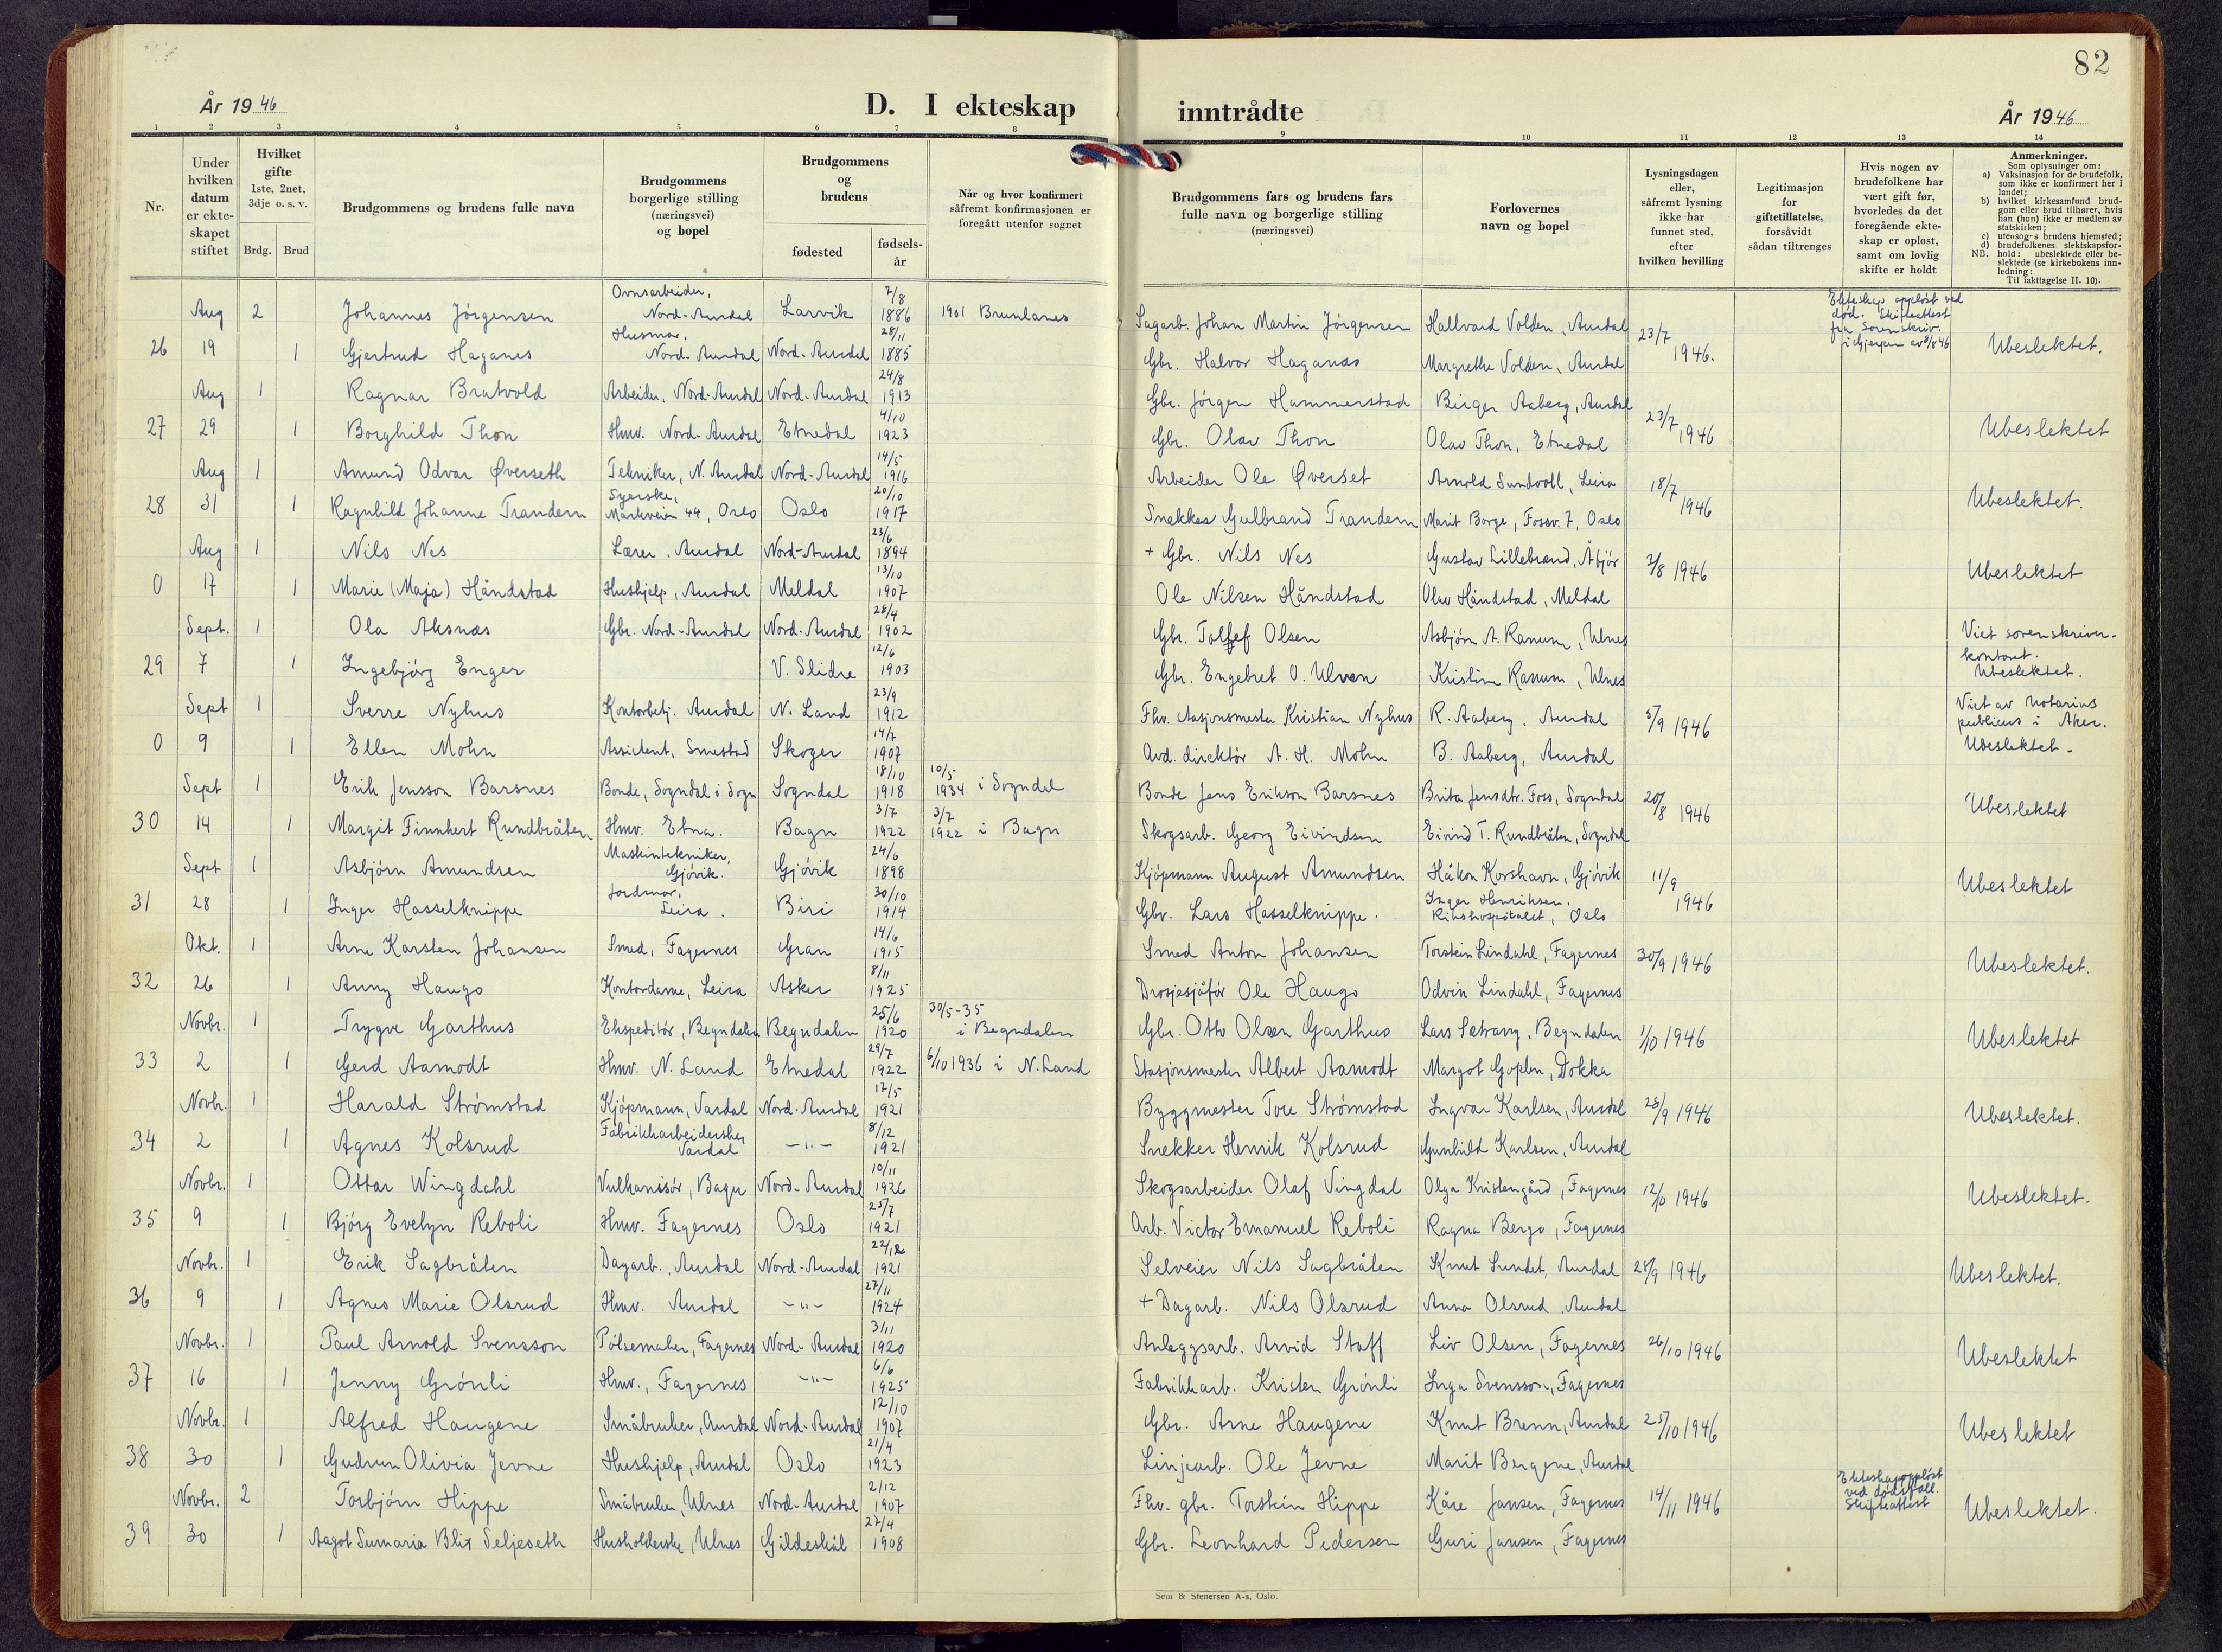 82
År 1946
D. I ekteskap inntrådte
År 1946
1 2 3 4 5 6 7 8 9 10 11 12 13 14
Nr.
Under hvilken datum er ekteskapet stiftet
Hvilket gifte 1ste, 2net, 3dje o. s. v.
Brdg. Brud
Brudgommens og brudens fulle navn
Brudgommens borgerlige stilling (næringsvei) og bopel
Brudgommens og brudens
fødested
fødselsår
Når og hvor konfirmert såfremt konfirmasjonen er foregått utenfor sognet
Brudgommens fars og brudens fars fulle navn og borgerlige stilling (næringsvei)
Forlovernes navn og bopel
Lysningsdagen eller, såfremt lysning ikke har funnet sted, efter hvilken bevilling
Legitimasjon for giftetillatelse, forsåvidt sådan tiltrenges
Hvis nogen av brudefolkene har vært gift før, hvorledes da det foregående ekteskap er opløst, samt om lovlig skifte er holdt
Anmerkninger.
Som oplysninger om:
a) Vaksinasjon for de brudefolk, som ikke er konfirmert her i landet;
b) hvilket kirkesamfund brudgom eller brud tilhører, hvis han (hun) ikke er medlem av statskirken;
c) utensogns brudens hjemsted;
d) brudefolkenes slektskapsforhold: ubeslektede eller beslektede (se kirkebokens innledning: Til iakttagelse II. 10).
NB.
Aug 2 Johannes Jörgensen Ovnsarbeider, Nord-Aurdal Larvik 7/8 1886 1901 Brunlanes Sagarb. Johan Martin Jörgensen Hallvard Volden, Aurdal 23/7 1946. Ekteskap oppløst ved död. Skifteattest fra Sorenskriv. i Gjerpen av 8/8 46
26 19 1 Gjertrud Haganes Husmor, Nord-Aurdal Nord-Aurdal 28/11 1885 Gbr. Halvor Haganes Margrethe Volden, Aurdal Ubeslektet.
Aug 1 Ragnar Bratvold Arbeider, Nord-Aurdal Nord-Aurdal 24/8 1913 Gbr. Jörgen Hammerstad Birger Aaberg, Aurdal 23/7 1946
27 29 1 Borghild Thon Hmv. Nord-Aurdal Etnedal 4/10 1923 Gbr. Olav Thon Olav Thon, Etnedal Ubeslektet
Aug 1 Amund Odvar Øverseth Tekniker, N. Aurdal Nord-Aurdal 14/5 1916 Arbeider Ole Øverset Arnold Sundvoll, Leira 18/7 1946
28 31 1 Ragnhild Johanne Trandem Syerske, Markveien 44, Oslo Oslo 20/10 1917 Snekker Gulbrand Trandem Marit Borge, Fossv. 7, Oslo Ubeslektet.
Aug 1 Nils Nes Lærer, Aurdal Nord-Aurdal 23/6 1894 + Gbr. Nils Nes Gustav Lillebrend, Åbjör 3/8 1946
0 17 1 Marie (Maja) Håndstad Hushjelp, Aurdal Meldal 13/10 1907 Ole Nilsen Håndstad Olav Håndstad, Meldal Ubeslektet
Sept. 1 Ola Aksnes Gbr. Nord-Aurdal Nord-Aurdal 28/4 1902 Gbr. Tollef Olsen Asbjörn A. Ranum, Ulnes Viet sorenskriver-
29 7 1 Ingebjörg Enger V. Slidre 12/6 1903 Gbr. Engebret O. Ulven Kristine Ranum, Ulnes kontoret. Ubeslektet.
Sept 1 Sverre Nyhus Kontorbetj. Aurdal N. Land 23/9 1912 Fhv. stasjonsmester Kristian Nyhus R. Aaberg, Aurdal 5/9 1946 Viet av Notarius publicus i Aker.
0 9 1 Ellen Mohn Assistent, Smestad Skoger 14/7 1907 Avd. direktör A. H. Mohn B. Aaberg, Aurdal Ubeslektet.
Sept 1 Erik Jensson Barsnes Bonde, Sogndal i Sogn Sogndal 18/10 1918 10/5 1934 i Sogndal Bonde Jens Erikson Barsnes Brita Jensdtr. Foss, Sogndal 20/8 1946
30 14 1 Margit Finnhert Rundbråten Hmv. Etna. Bagn 3/7 1922 3/7 1922 i Bagn Skogsarb. Georg Eivindsen Eivind T. Rundbråten, Sogndal Ubeslektet
Sept 1 Asbjörn Amundsen Maskintekniker, Gjövik. Gjövik 24/6 1898 Kjöpmann August Amundsen Håkon Korshavn, Gjövik 11/9 1946
31 28 1 Inger Hasselknippe Jordmor, Leira. Biri 30/10 1914 Gbr. Lars Hasselknippe. Inger Henriksen, Rikshospitalet, Oslo Ubeslektet
Okt. 1 Arne Karsten Johansen Smed, Fagernes Gran 14/6 1915 Smed Anton Johansen Torstein Lindahl, Fagernes 30/9 1946
32 26 1 Anny Haugo Kontordame, Leira Asker 8/11 1925 Drosjesjåför Ole Haugo Odvin Lindahl, Fagernes Ubeslektet.
Novbr. 1 Trygve Garthus Ekspeditör, Begndalen Begndalen 25/6 1920 30/5-35 i Begndalen Gbr. Otto Olsen Garthus Lars Sætrang, Begndalen 1/10 1946
33 2 1 Gerd Aamodt Hmv. N. Land Etnedal 29/7 1922 6/10 1936 i N. Land Stasjonsmester Albert Aamodt Margot Goplen, Dokka Ubeslektet
Novbr. 1 Harald Strömstad Kjöpmann, Vardal Nord-Aurdal 17/5 1921 Byggmester Tore Strömstad Ingvar Karlsen, Aurdal 28/9 1946
34 2 1 Agnes Kolsrud Fabrikkarbeiderske Vardal -"- 8/12 1921 Snekker Henrik Kolsrud Gunhild Karlsen, Aurdal Ubeslektet.
Novbr. 1 Ottar Wingdahl Vulkanisör, Bagn Nord-Aurdal 10/11 1926 Skogsarbeider Olaf Vingdal Olga Kristengård, Fagernes 12/10 1946
35 9 1 Björg Evelyn Reboli Hmv. Fagernes Oslo 25/7 1921 Arb. Victor Emanuel Reboli Ragna Bergo, Fagernes Ubeslektet.
Novbr. 1 Erik Sagbråten Dagarb., Aurdal Nord-Aurdal 22/12 1921 Selveier Nils Sagbråten Knut Sundet, Aurdal 28/9 1946
36 9 1 Agnes Marie Olsrud Hmv. Aurdal -"- 27/11 1924 + Dagarb. Nils Olsrud Anna Olsrud, Aurdal Ubeslektet.
Novbr. 1 Paul Arnold Svensson Pölsemaker, Fagernes Nord-Aurdal 3/11 1920 Anleggsarb. Arvid Staff Liv Olsen, Fagernes 26/10 1946
37 16 1 Jenny Grönli Hmv., Fagernes -"- 6/6 1925 Fabrikkarb. Kristen Grönli Inga Svensson, Fagernes Ubeslektet
Novbr. 1 Alfred Haugene Småbruker, Aurdal Nord-Aurdal 12/10 1907 Gbr. Arne Haugene Knut Brenn, Aurdal 25/10 1946
38 30 1 Gudrun Olivia Jevne Hushjelp, Aurdal Oslo 21/4 1923 Linjearb. Ole Jevne Marit Bergene, Aurdal Ubeslektet
Novbr. 2 Torbjörn Hippe Småbruker, Ulnes Nord-Aurdal 2/12 1907 Fhv. gbr. Torstein Hippe Kåre Jansen, Fagernes 14/11 1946 Ekteskap oppløst ved dödsfall. Skifteattest
39 30 1 Aagot Sumaria Blix Seljeseth Husholderske, Ulnes Gildeskål 27/4 1908 Gbr. Leonhard Pedersen Guri Jansen, Fagernes Ubeslektet.
Sem & Stenersen A-s, Oslo.